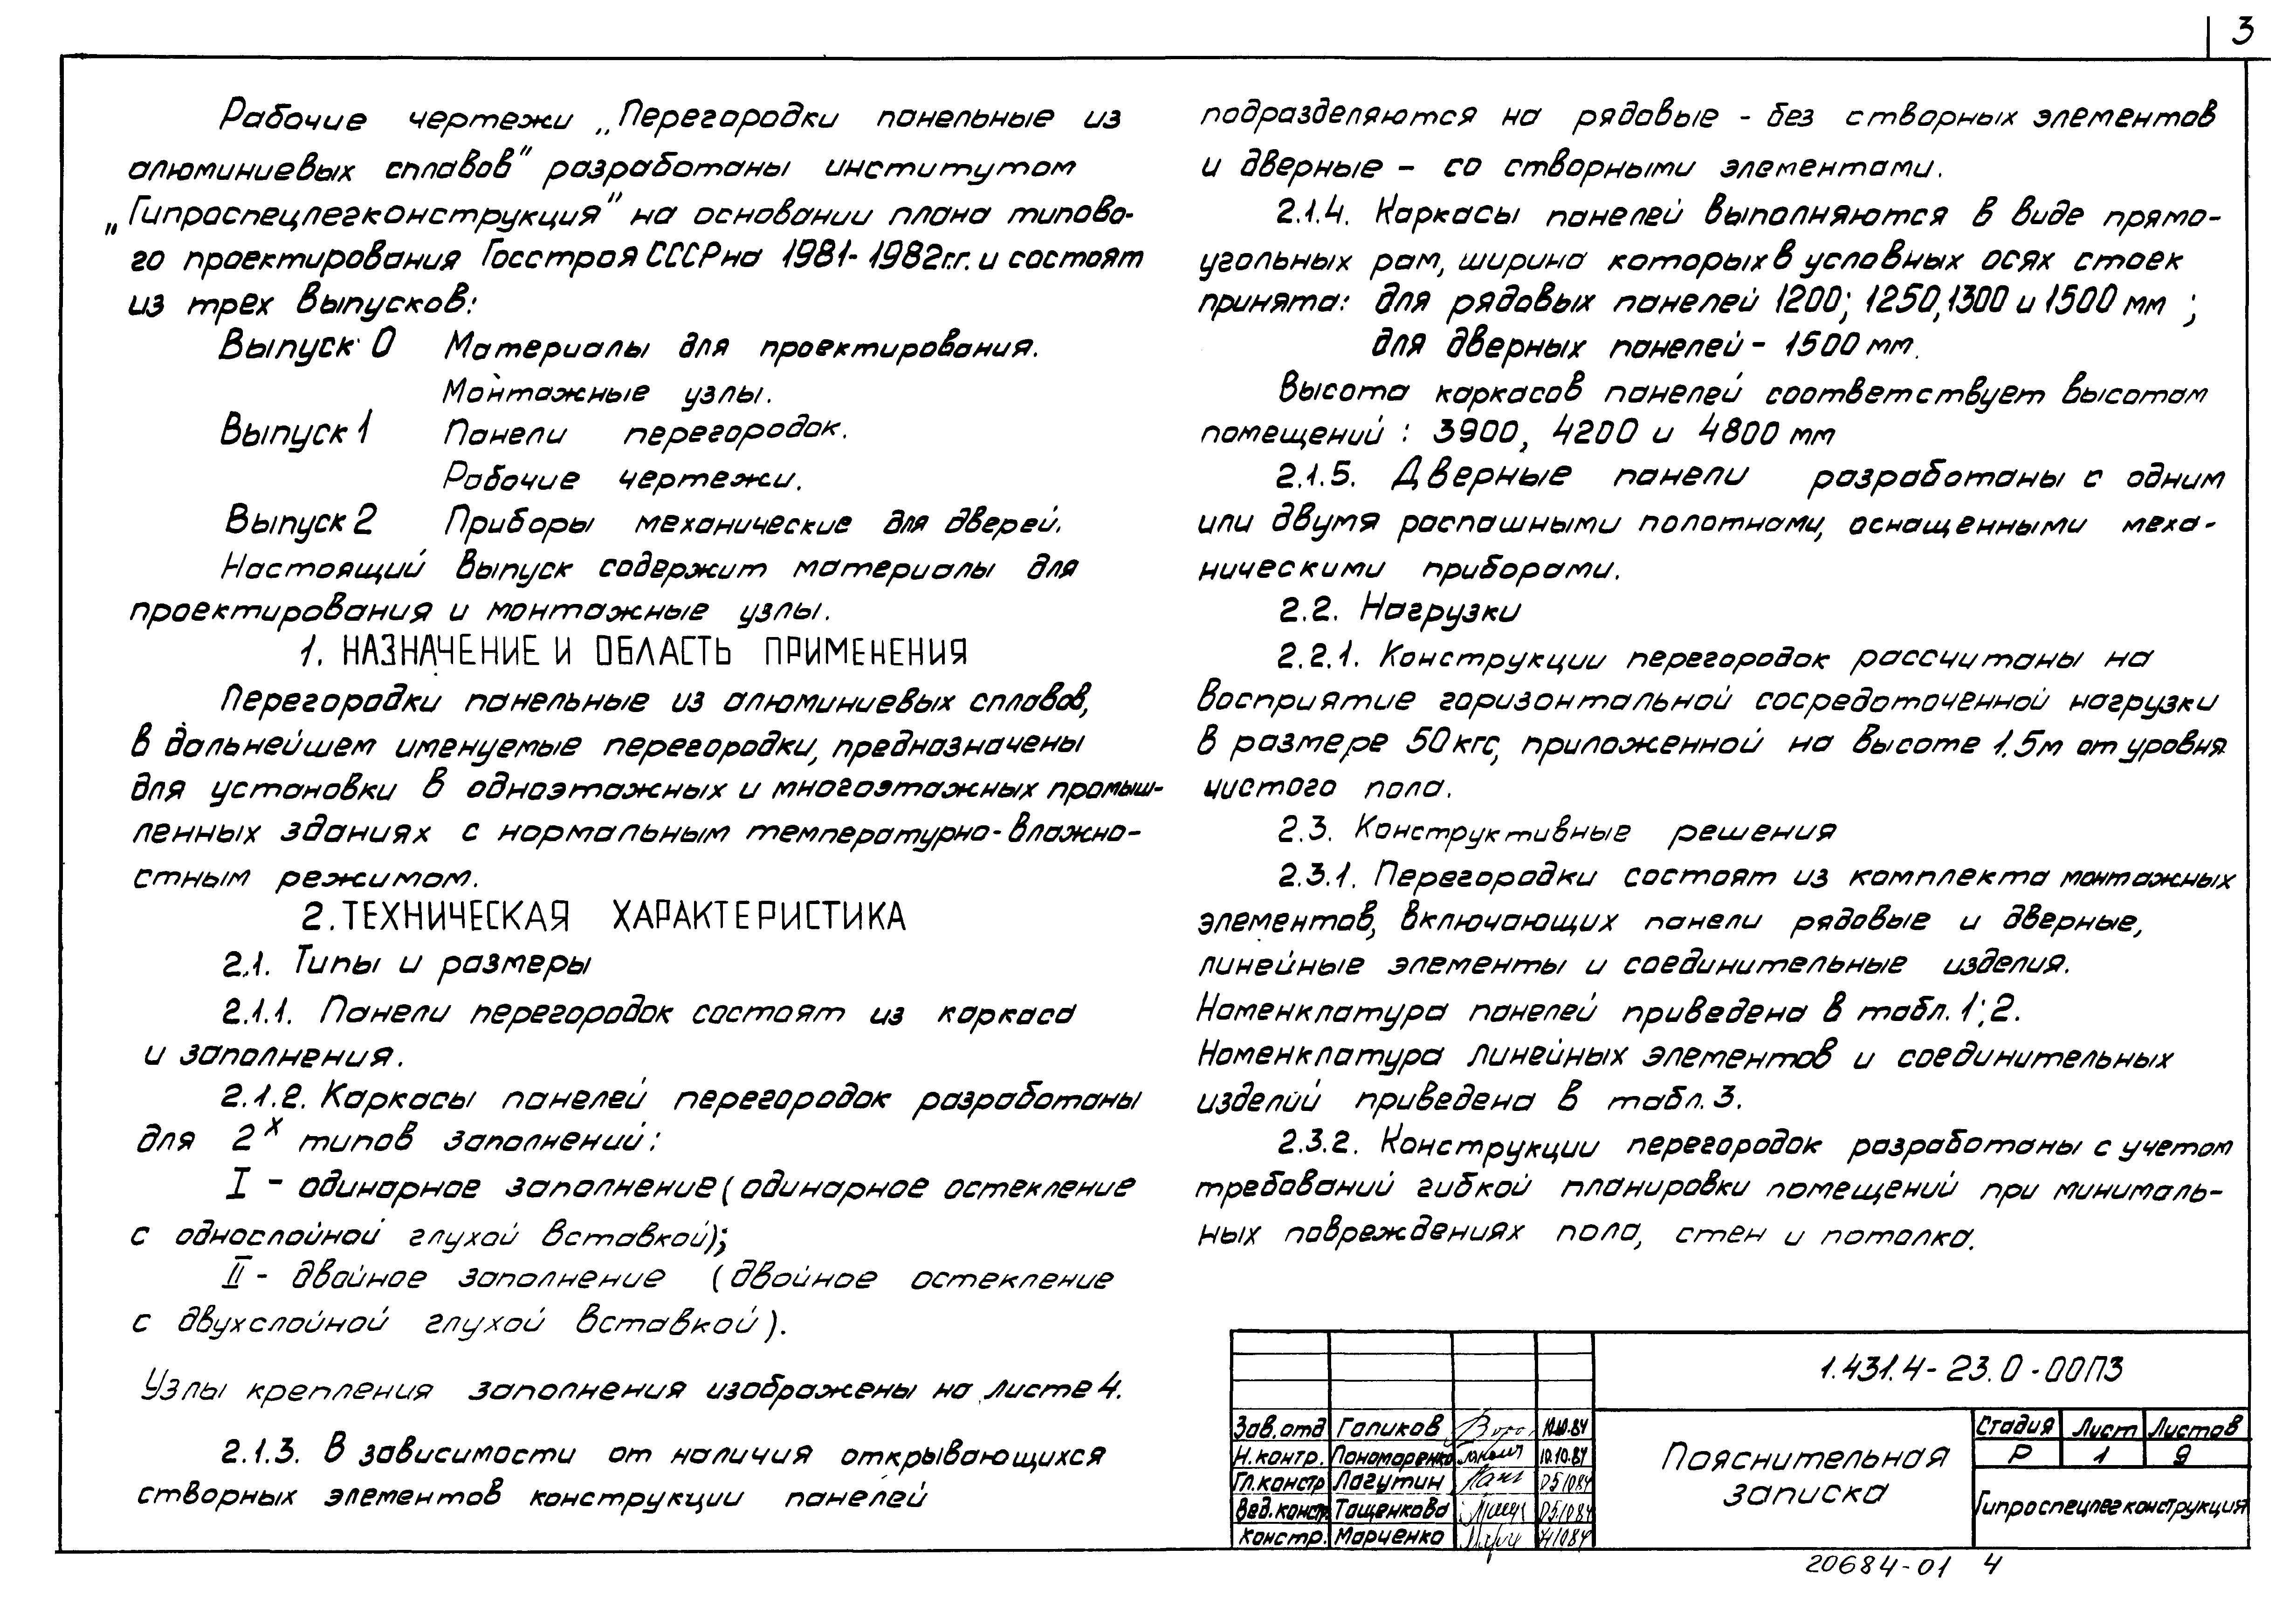 3
Рабочие чертежи „Перегородки панельные из
алюминиевых сплавов" разработаны институтом
„Гипроспецлегконструкция" на основании плана типово-
го проектирования Госстроя СССР на 1981-1982г.г. и состоят
из трех выпусков:
Выпуск 0 Материалы для проектирования.
Монтажные узлы.
Выпуск 1 Панели перегородок.
Рабочие чертежи.
Выпуск 2 Приборы механические для дверей.
Настоящий выпуск содержит материалы для
проектирования и монтажные узлы.
1. НАЗНАЧЕНИЕ И ОБЛАСТЬ ПРИМЕНЕНИЯ
Перегородки панельные из алюминиевых сплавов,
в дальнейшем именуемые перегородки, предназначены
для установки в одноэтажных и многоэтажных промыш-
ленных зданиях с нормальным температурно-влажно-
стным режимом.
2. ТЕХНИЧЕСКАЯ ХАРАКТЕРИСТИКА
2.1. Типы и размеры
2.1.1. Панели перегородок состоят из каркаса
и заполнения.
2.1.2. Каркасы панелей перегородок разработаны
для 2х типов заполнений:
I - одинарное заполнение (одинарное остекление
с однослойной глухой вставкой);
II - двойное заполнение (двойное остекление
с двухслойной глухой вставкой).
Узлы крепления заполнения изображены на листе 4.
2.1.3. В зависимости от наличия открывающихся
створных элементов конструкции панелей
подразделяются на рядовые - без створных элементов
и дверные - со створными элементами.
2.1.4. Каркасы панелей выполняются в виде прямо-
угольных рам, ширина которых в условных осях стоек
принята: для рядовых панелей 1200; 1250, 1300 и 1500 мм;
для дверных панелей - 1500 мм.
Высота каркасов панелей соответствует высотам
помещений: 3900, 4200 и 4800 мм
2.1.5. Дверные панели разработаны с одним
или двумя распашными полотнами, оснащенными меха-
ническими приборами.
2.2. Нагрузки
2.2.1. Конструкции перегородок рассчитаны на
восприятие горизонтальной сосредоточенной нагрузки
в размере 50 кгс, приложенной на высоте 1.5м от уровня
чистого пола.
2.3. Конструктивные решения
2.3.1. Перегородки состоят из комплекта монтажных
элементов, включающих панели рядовые и дверные,
линейные элементы и соединительные изделия.
Номенклатура панелей приведена в табл. 1; 2.
Номенклатура линейных элементов и соединительных
изделий приведена в табл. 3.
2.3.2. Конструкции перегородок разработаны с учетом
требований гибкой планировки помещений при минималь-
ных повреждениях пола, стен и потолка.
1.431.4-23.0-00ПЗ
Зав.отд Галиков 10.10.84
Н.контр. Пономаренко 10.10.84
Гл.констр Лагутин 05.10.84
Вед.конст. Тащенкова 05.10.84
Констр. Марченко
Пояснительная
записка
Стадия Лист Листов
Р 1 9
Гипроспецлегконструкция
20684-01 4